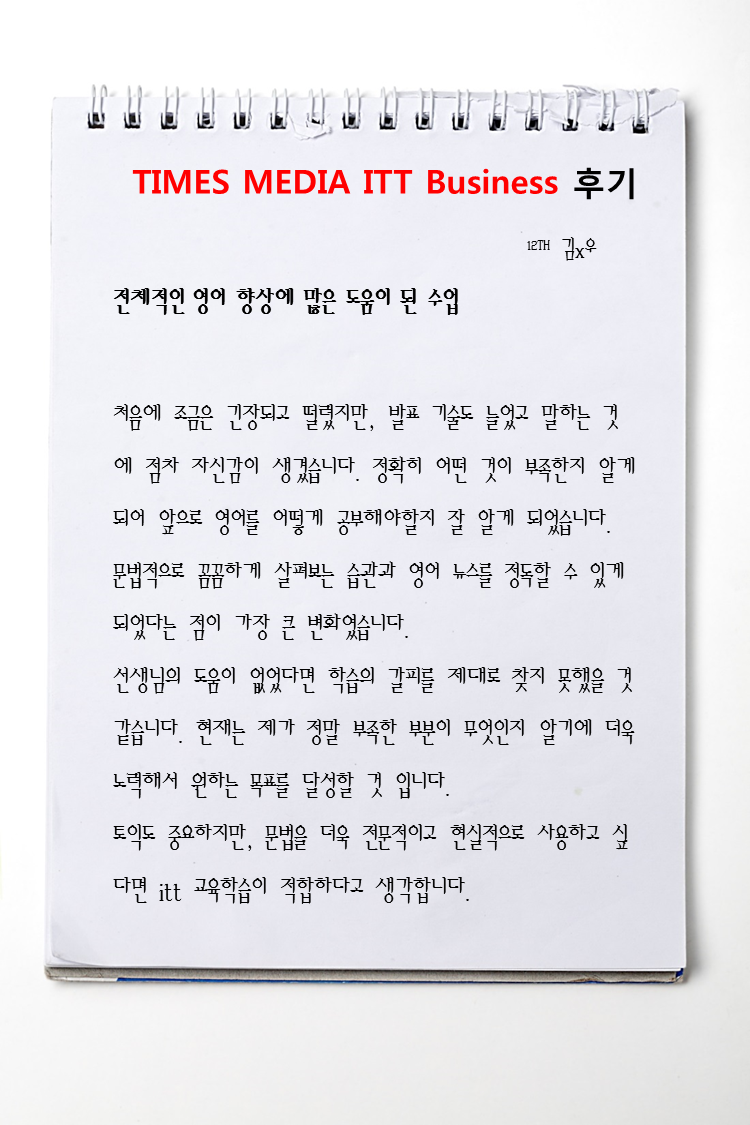 TIMES MEDIA ITT Business 후기
12TH 김x우
전체적인 영어 향상에 많은 도움이 된 수업
처음에 조금은 긴장되고 떨렸지만, 발표 기술도 늘었고 말하는 것
에 점차 자신감이 생겼습니다. 정확히 어떤 것이 부족한지 알게
되어 앞으로 영어를 어떻게 공부해야할지 잘 알게 되었습니다.
문법적으로 꼼꼼하게 살펴보는 습관과 영어 뉴스를 정독할 수 있게
되었다는 점이 가장 큰 변화였습니다.
선생님의 도움이 없었다면 학습의 갈피를 제대로 찾지 못했을 것
같습니다. 현재는 제가 정말 부족한 부분이 무엇인지 알기에 더욱
노력해서 원하는 목표를 달성할 것 입니다.
토익도 중요하지만, 문법을 더욱 전문적이고 현실적으로 사용하고 싶
다면 itt 교육학습이 적합하다고 생각합니다.